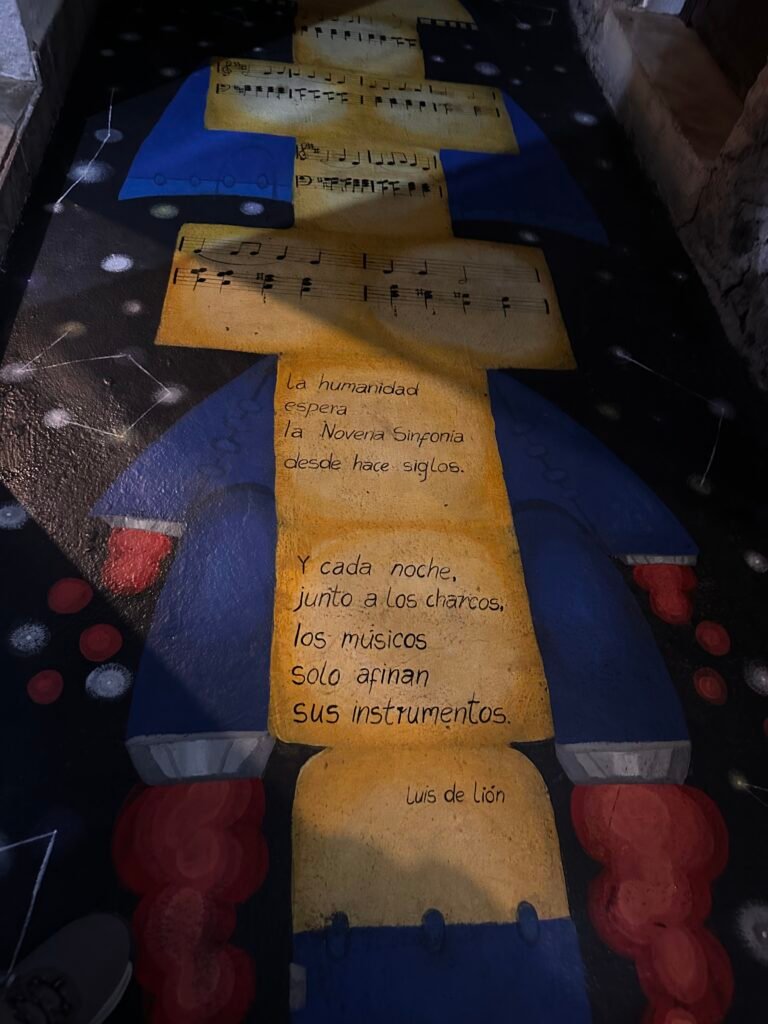 La humanidad
espera
la Novena Sinfonía
desde hace siglos.
Y cada noche,
junto a los charcos,
los músicos
solo afinan
sus instrumentos.
Luis de lión